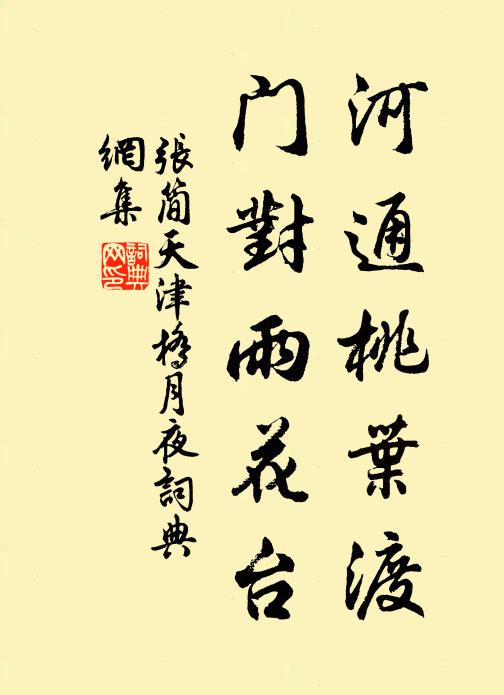 河通桃葉渡
门對雨花台
張簡天津橋月夜詞典
網集
詞典
网印